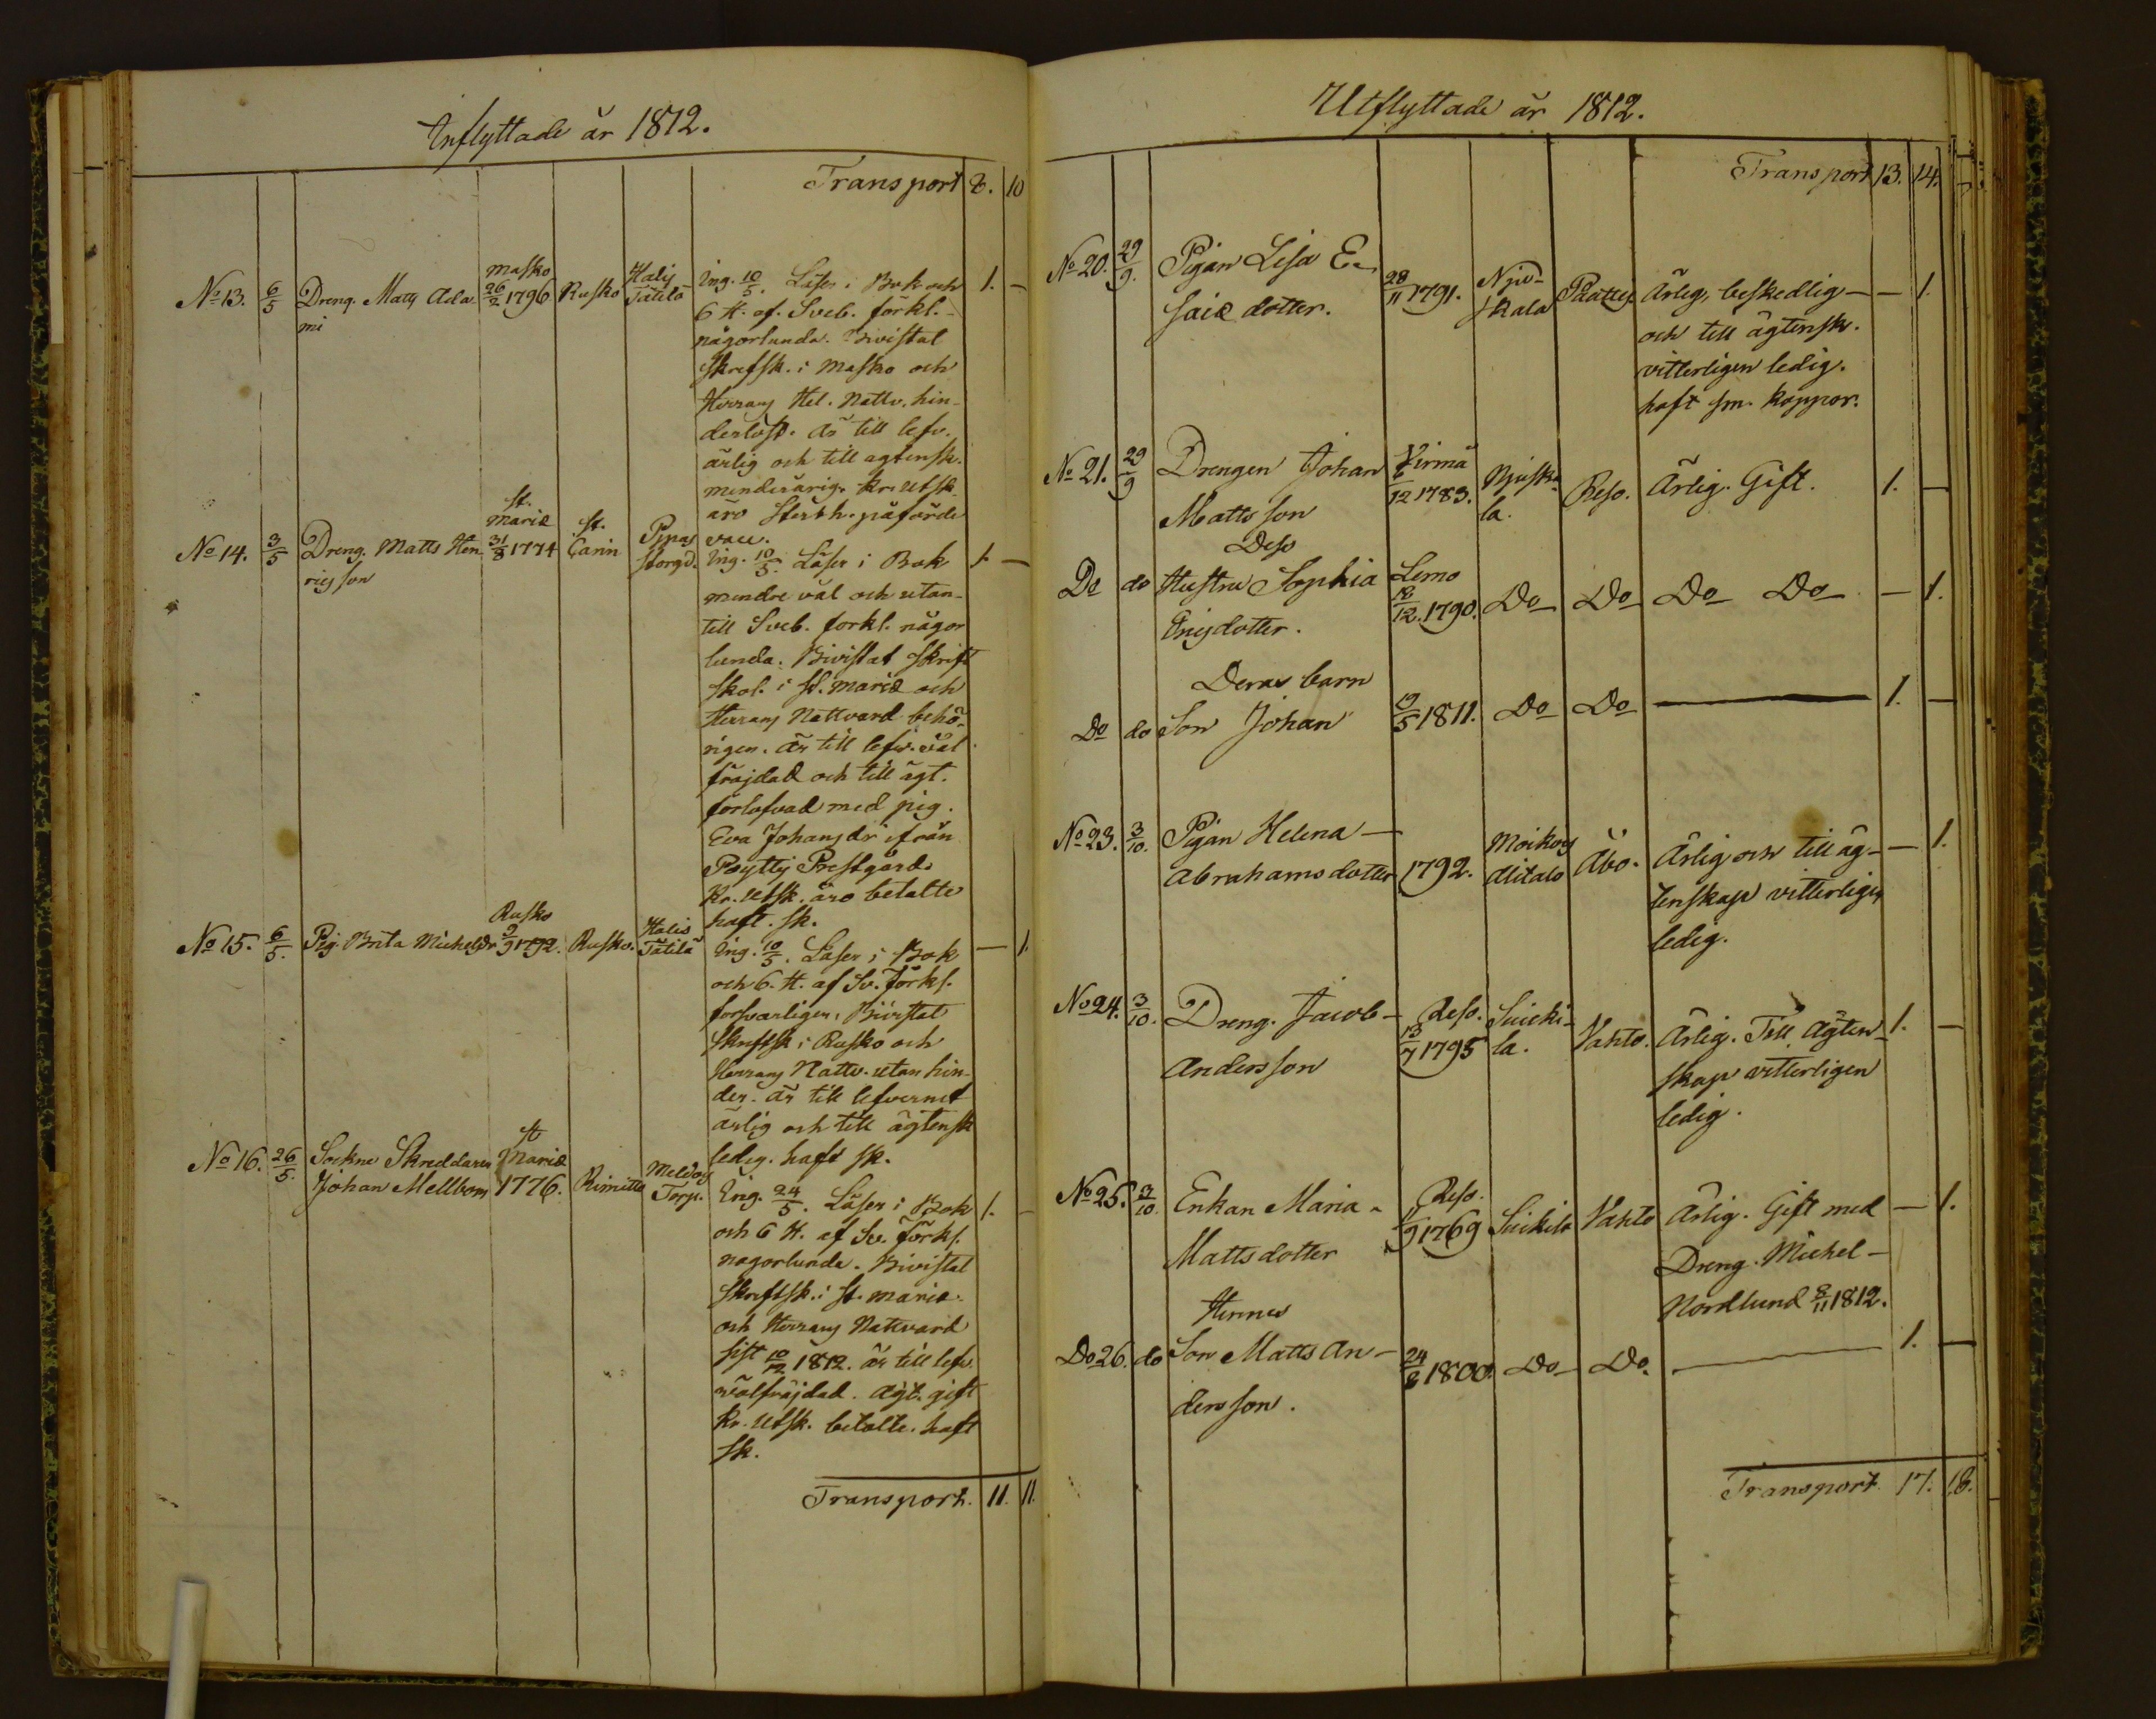 Inflyttade år 1812.
Transport 8. 10
No 13. 6/5 Dreng. Matts Ada
mi
Masko
26/2 1796
Rusko
Halis
Tätilä
Ing. 10/5. Läser i Bok och
6 H. af Sveb. förkl.
någorlunda. Bivistat
Skrifsk. i Masko och
Herrans Hel. Nattv. hin-
derlöst. Är till lefv.
ärlig och till ägtensk.
minderårig. Kr. Utsk.
äro påförde
1. —
No 14. 3/5 Dreng. Matts Hen
rics son
St.
Mariæ
31/8 1774
St.
Carin
Pipas
Storgd.
Ing. 10/5. Läser i Bok
mindre väl och utan-
till Sveb. förkl. någor
lunda. Bivistat Skrift
skol. i St. Mariæ och
Herrans Nattvard behö-
rigen. Är till lefv. väl
fräjdad och till ägt.
förlofvad med pig.
Eva Johansdr ifrån
Pöytys Prestgård.
Kr. Utsk. äro betalte
haft. sk.
1. —
No 15. 6/5. Pig. Brita Michelsdr
Rusko
9/9 1792.
Rusko.
Halis
Tätilä
Ing. 10/5. Läser i Bok
och 6. H. af Sv. förkl.
forsvarligen, Bivistat
Skriftsk i Rusko och
Herrans Nattv. utan hin-
der. Är till lefvernet
ärlig och till ägtensk
ledig. haft sk.
— 1.
No 16. 26/5. Sockne Skreddaren
Johan Mellbom
St
Mariæ
1776.
Rimitto
Meldos
Torp.
Ing. 24/5. Läser i Bok
och 6 H. af Sv. förkl.
nagorlunda. Bivistat
Skriftsk. i St. Mariæ.
och Herrans Nattvard
sist 10/12 1812. är till lefv.
wälfräjdad. Ägt. gift
Kr. Utsk. betalte. haft
sk.
1. —
Transport. 11. 11.
Utflyttade år 1812.
Transport 13. 14.
No 20. 29/9. Pigan Lisa E-
saiæ dotter.
28/11 1791.
Nju-
skala
Paattis
Ärlig, beskedlig
och till ägtensk.
vitterligen ledig.
haft sm. koppor.
— 1.
No 21. 29/9 Drengen Johan
Matts son
Virmå
6/12 1783.
Njuska
la.
Reso.
Ärlig. Gift.
1. —
Do do
Dess
Hustru Sophia
Ericsdotter.
Lemo
12.1790.
Do Do Do Do — 1.
Deras barn
Do do Son Johan
19/5 1811. Do Do — 1. —
No 23. 3/10. Pigan Helena
Abrahams dotter
1792.
Moikois
Alitalo
Åbo.
Ärlig och till äg-
tenskap vitterligen
ledig.
— 1.
No 24. 3/10. Dreng. Jacob
Andersson
Reso.
13/7 1795
Suicki-
la.
Vahto.
Ärlig. Till ägten-
skap vitterligen
ledig.
1. —
No 25. 3/10 Enkan Maria
Mattsdotter
Reso.
11/9 1769
Suikila Vahto
Ärlig. Gift med
Dreng. Michel
Nordlund 8/11 1812.
— 1.
Hennes
Do 26. do Son Matts An-
dersson.
24/6 1800. Do Do. — 1. —
Transport. 17. 18.